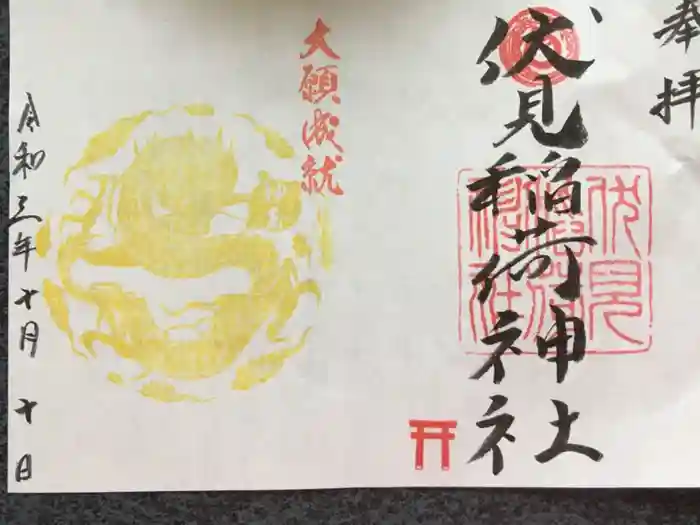 奉拝
伏見稲荷神社
伏見稲荷神社
大願成就
令和三年十月十日